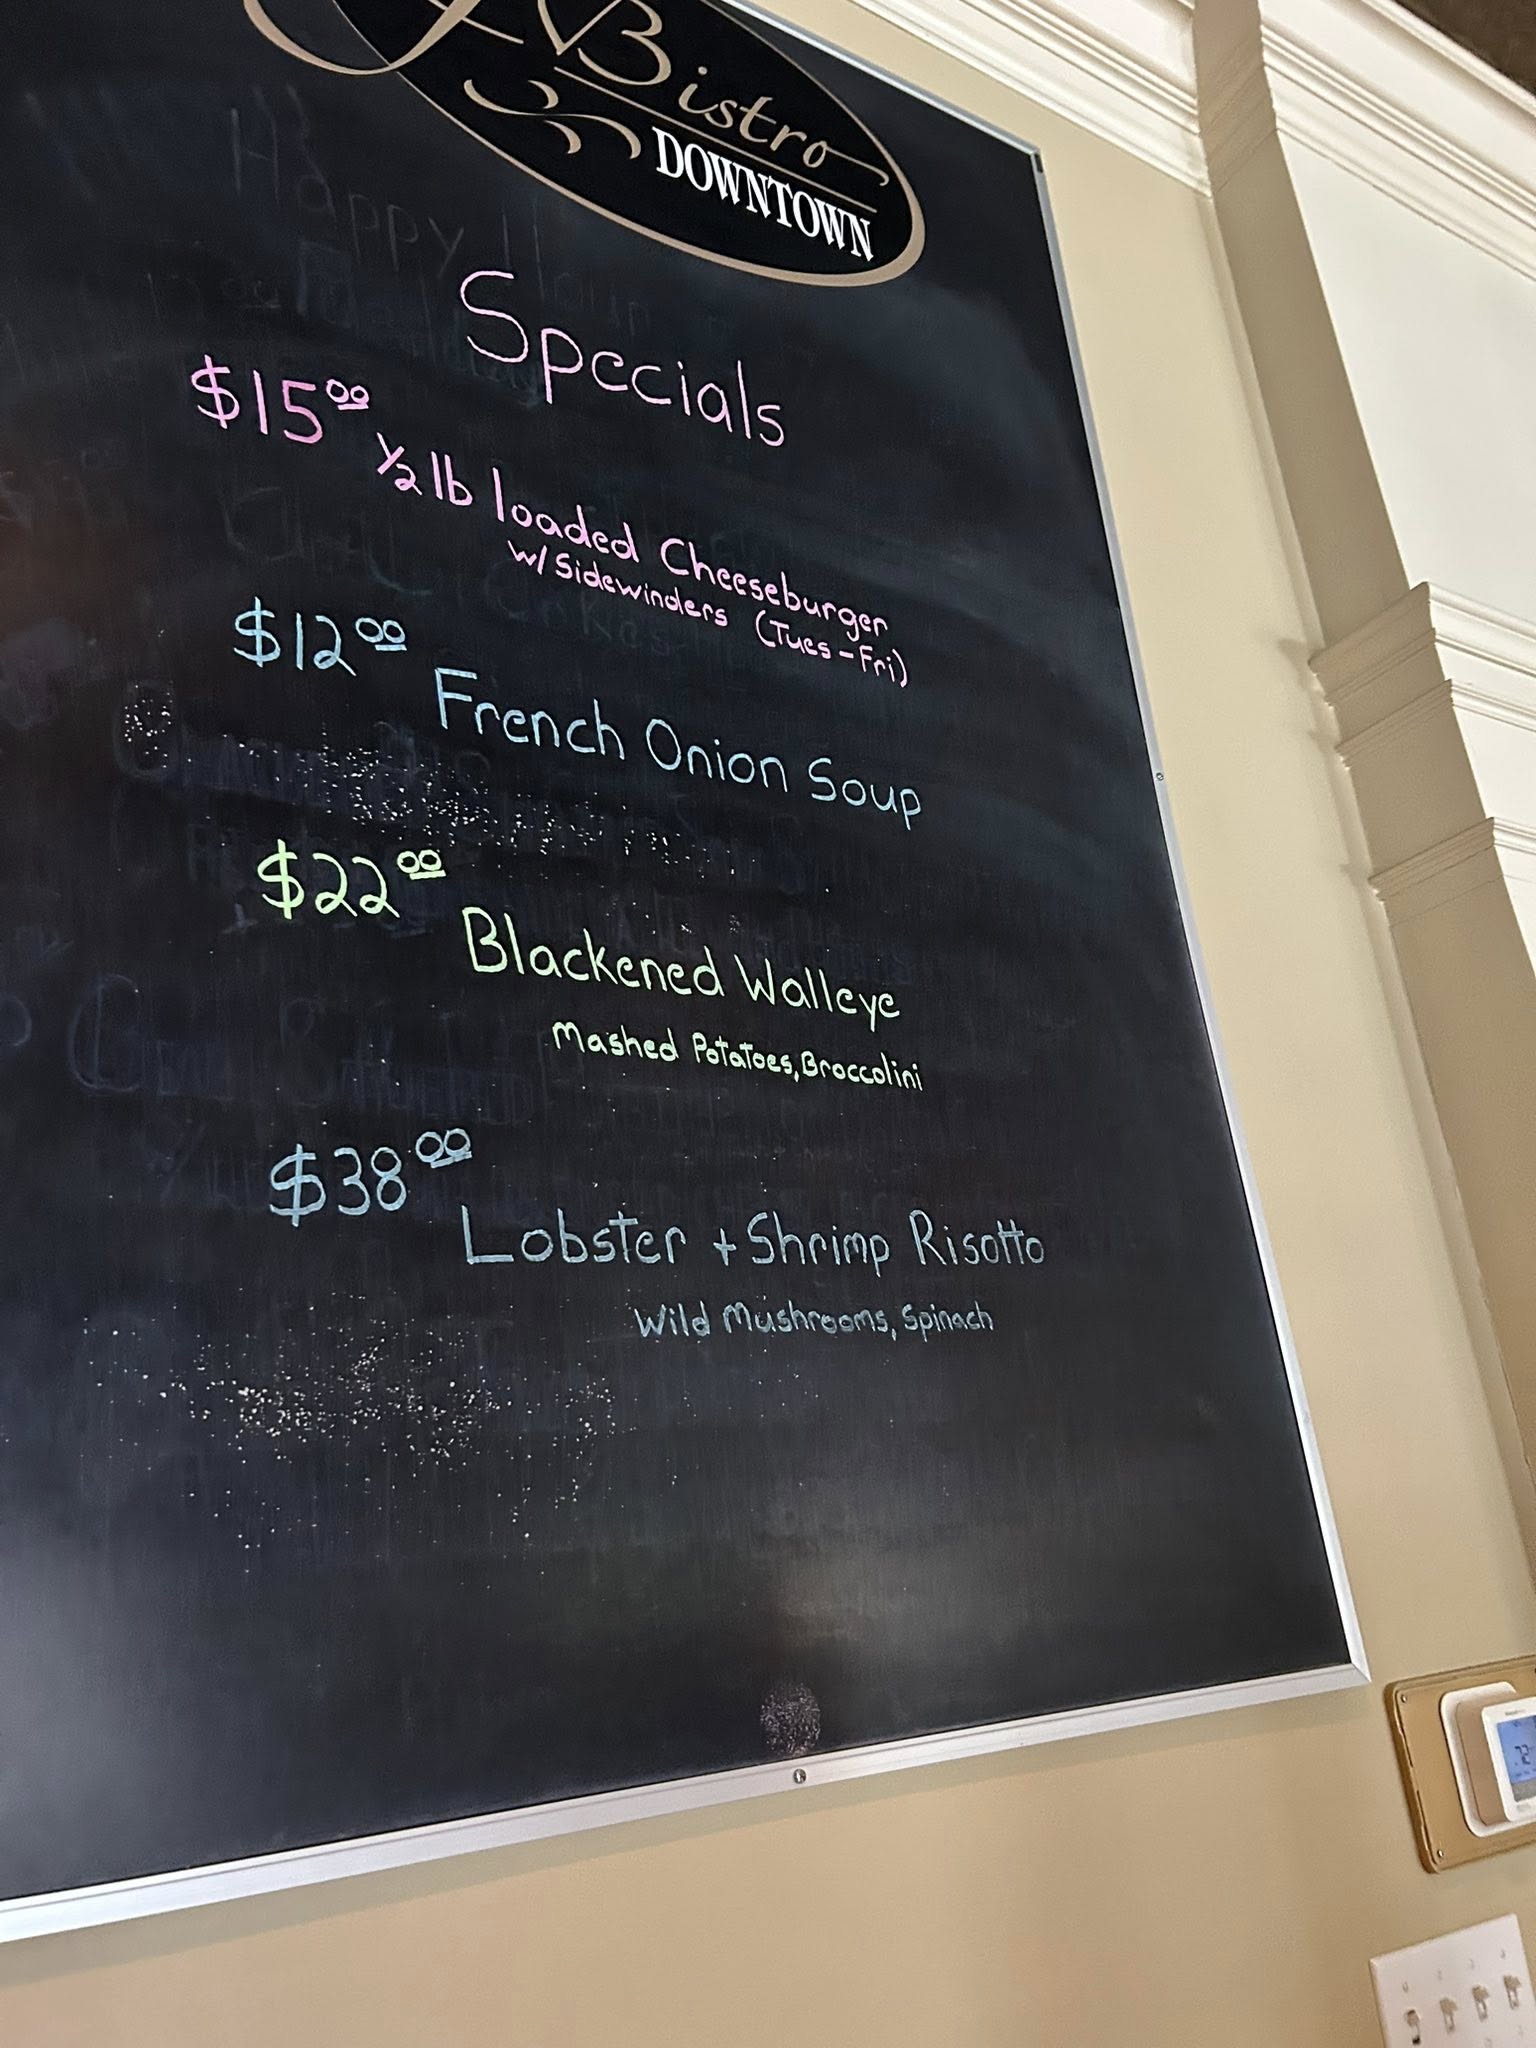 Bistro
DOWNTOWN
Specials
$15.00
1/2 lb loaded Cheeseburger
w/ Sidewinders (Tues-Fri)
$12.00
French Onion Soup
$22.00
Blackened Walleye
Mashed Potatoes, Broccolini
$38.00
Lobster + Shrimp Risotto
Wild Mushrooms, Spinach
72